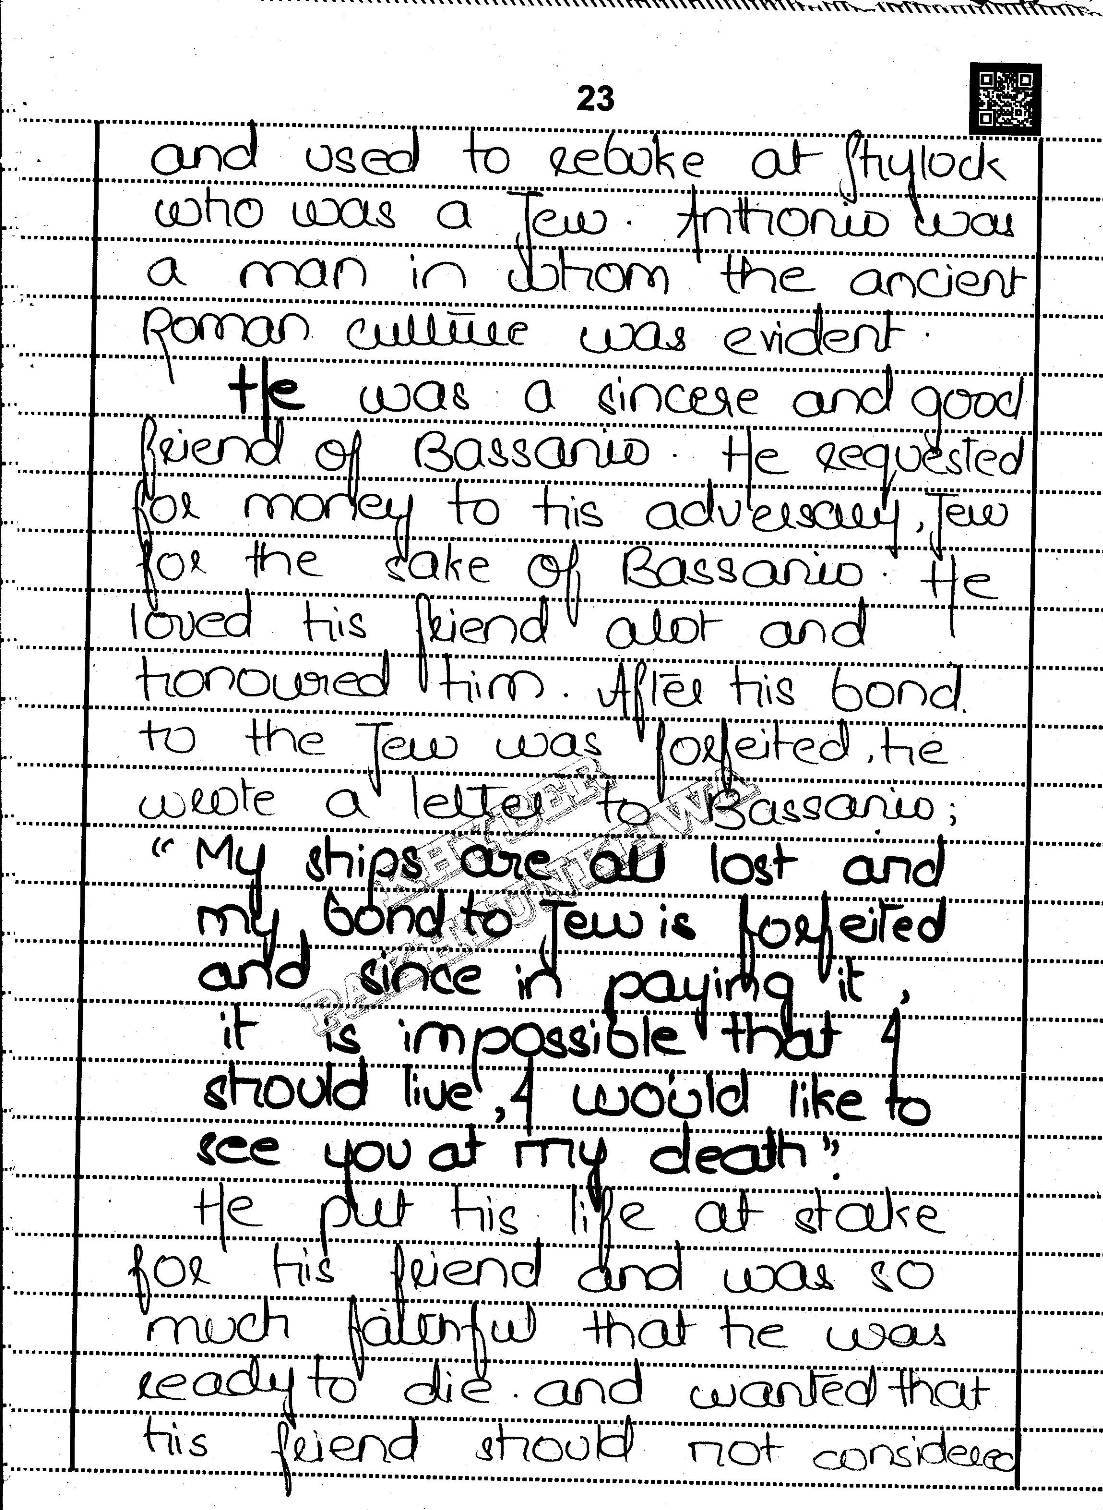 23
and used to rebuke at Shylock
who was a Jew. Anthonio was
a man in whom the ancient
Roman culture was evident.
He was a sincere and good
friend of Bassanio. He requested
for money to his adversary, Jew
for the sake of Bassanio. He
loved his friend alot and
honoured him. After his bond
to the Jew was forfeited, he
wrote a letter to Bassanio;
"My ships are all lost and
my bond to Jew is forfeited
and since in paying it,
it is impossible that I
should live, I would like to
see you at my death".
He put his life at stake
for his friend and was so
much faithful that he was
ready to die and wanted that
his friend should not considered